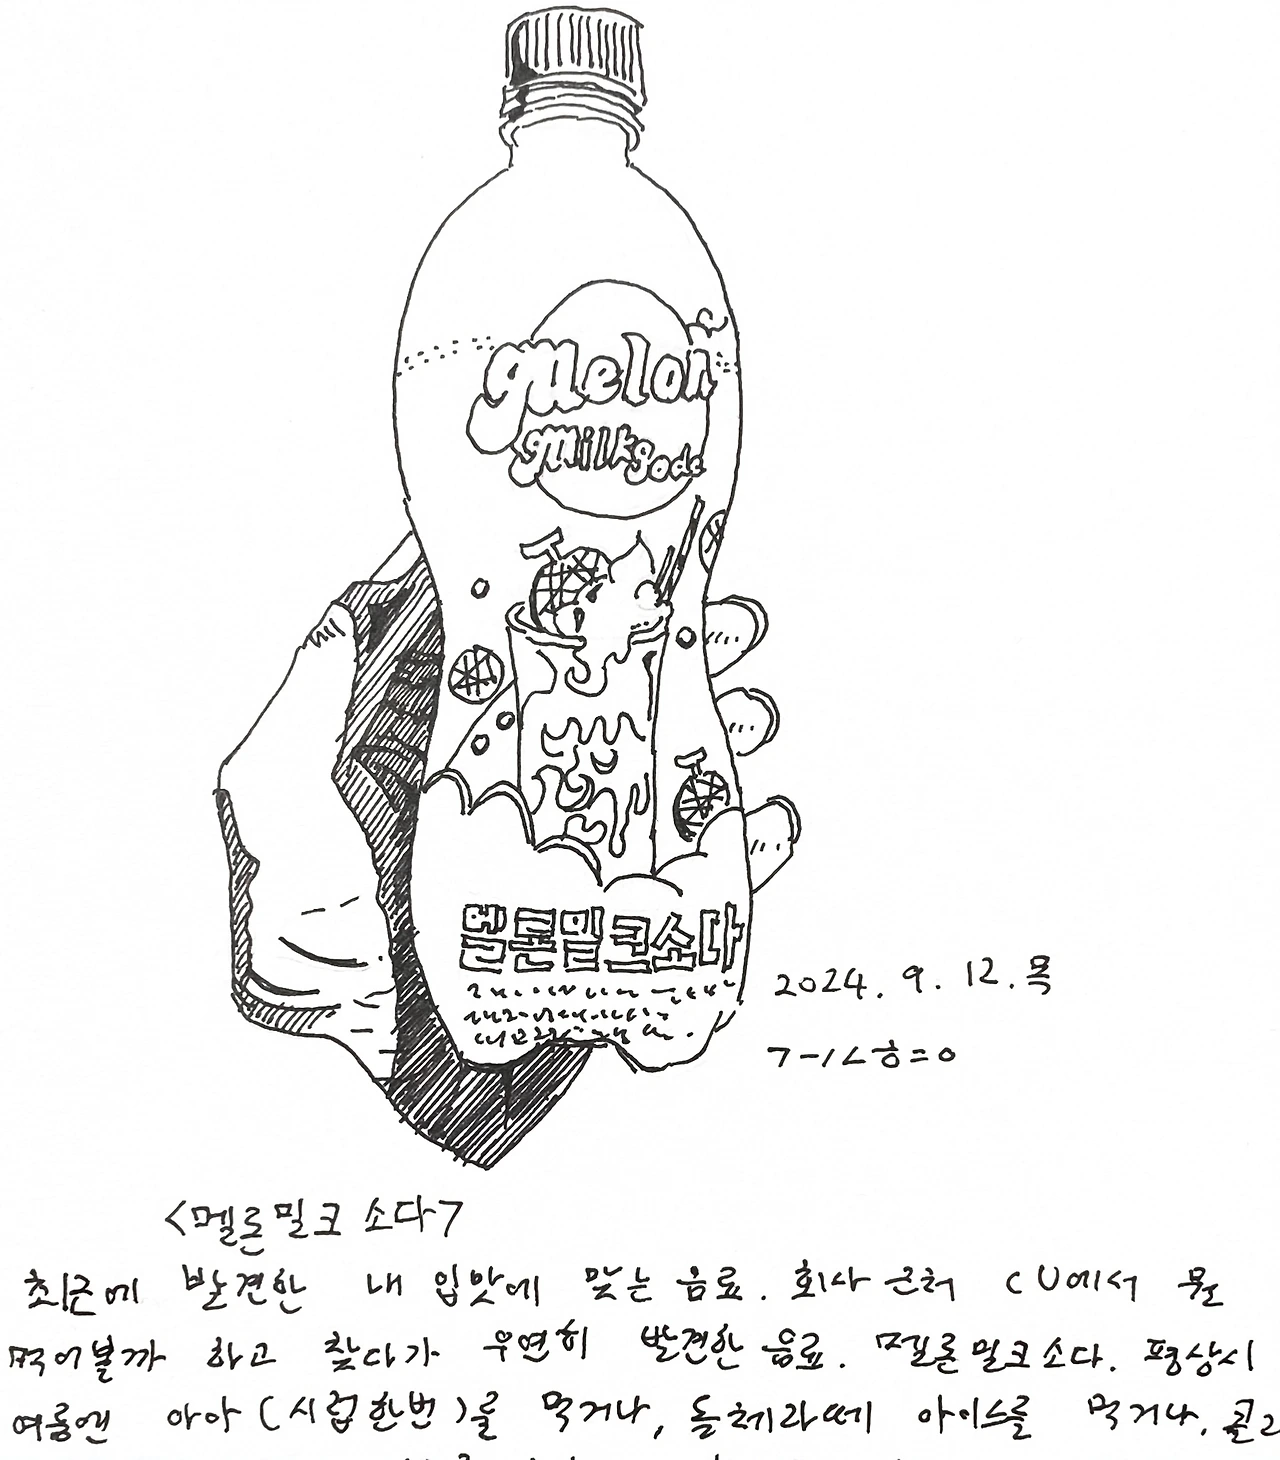 melon
milk soda
멜론밀크소다
2024. 9. 12. 목
<멜론밀크 소다>
최근에 발견한 내 입맛에 맞는 음료. 회사 근처 CU에서 뭘
먹어볼까 하고 찾다가 우연히 발견한 음료. 멜론밀크소다. 평상시
여름엔 아아(시럽한번)를 먹거나, 돌체라떼 아이스를 먹거나, 콜